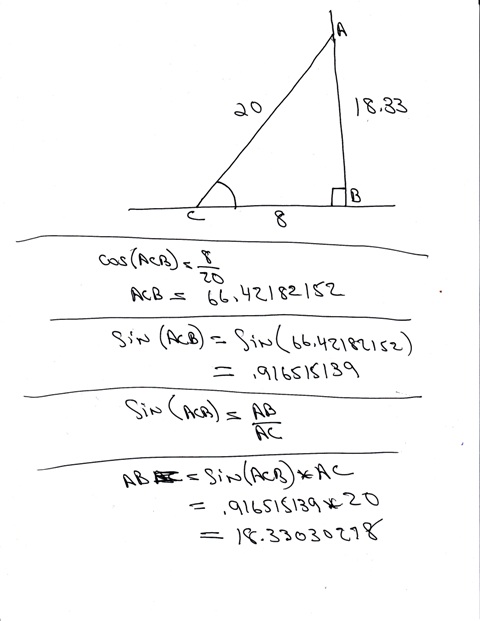 A
20
18.33
B
C
8
cos(ACB) = 8/20
ACB = 66.42182152
Sin(ACB) = Sin(66.42182152)
= .916515139
Sin(ACB) = AB/AC
AB = Sin(ACB) * AC
= .916515139 * 20
= 18.33030278